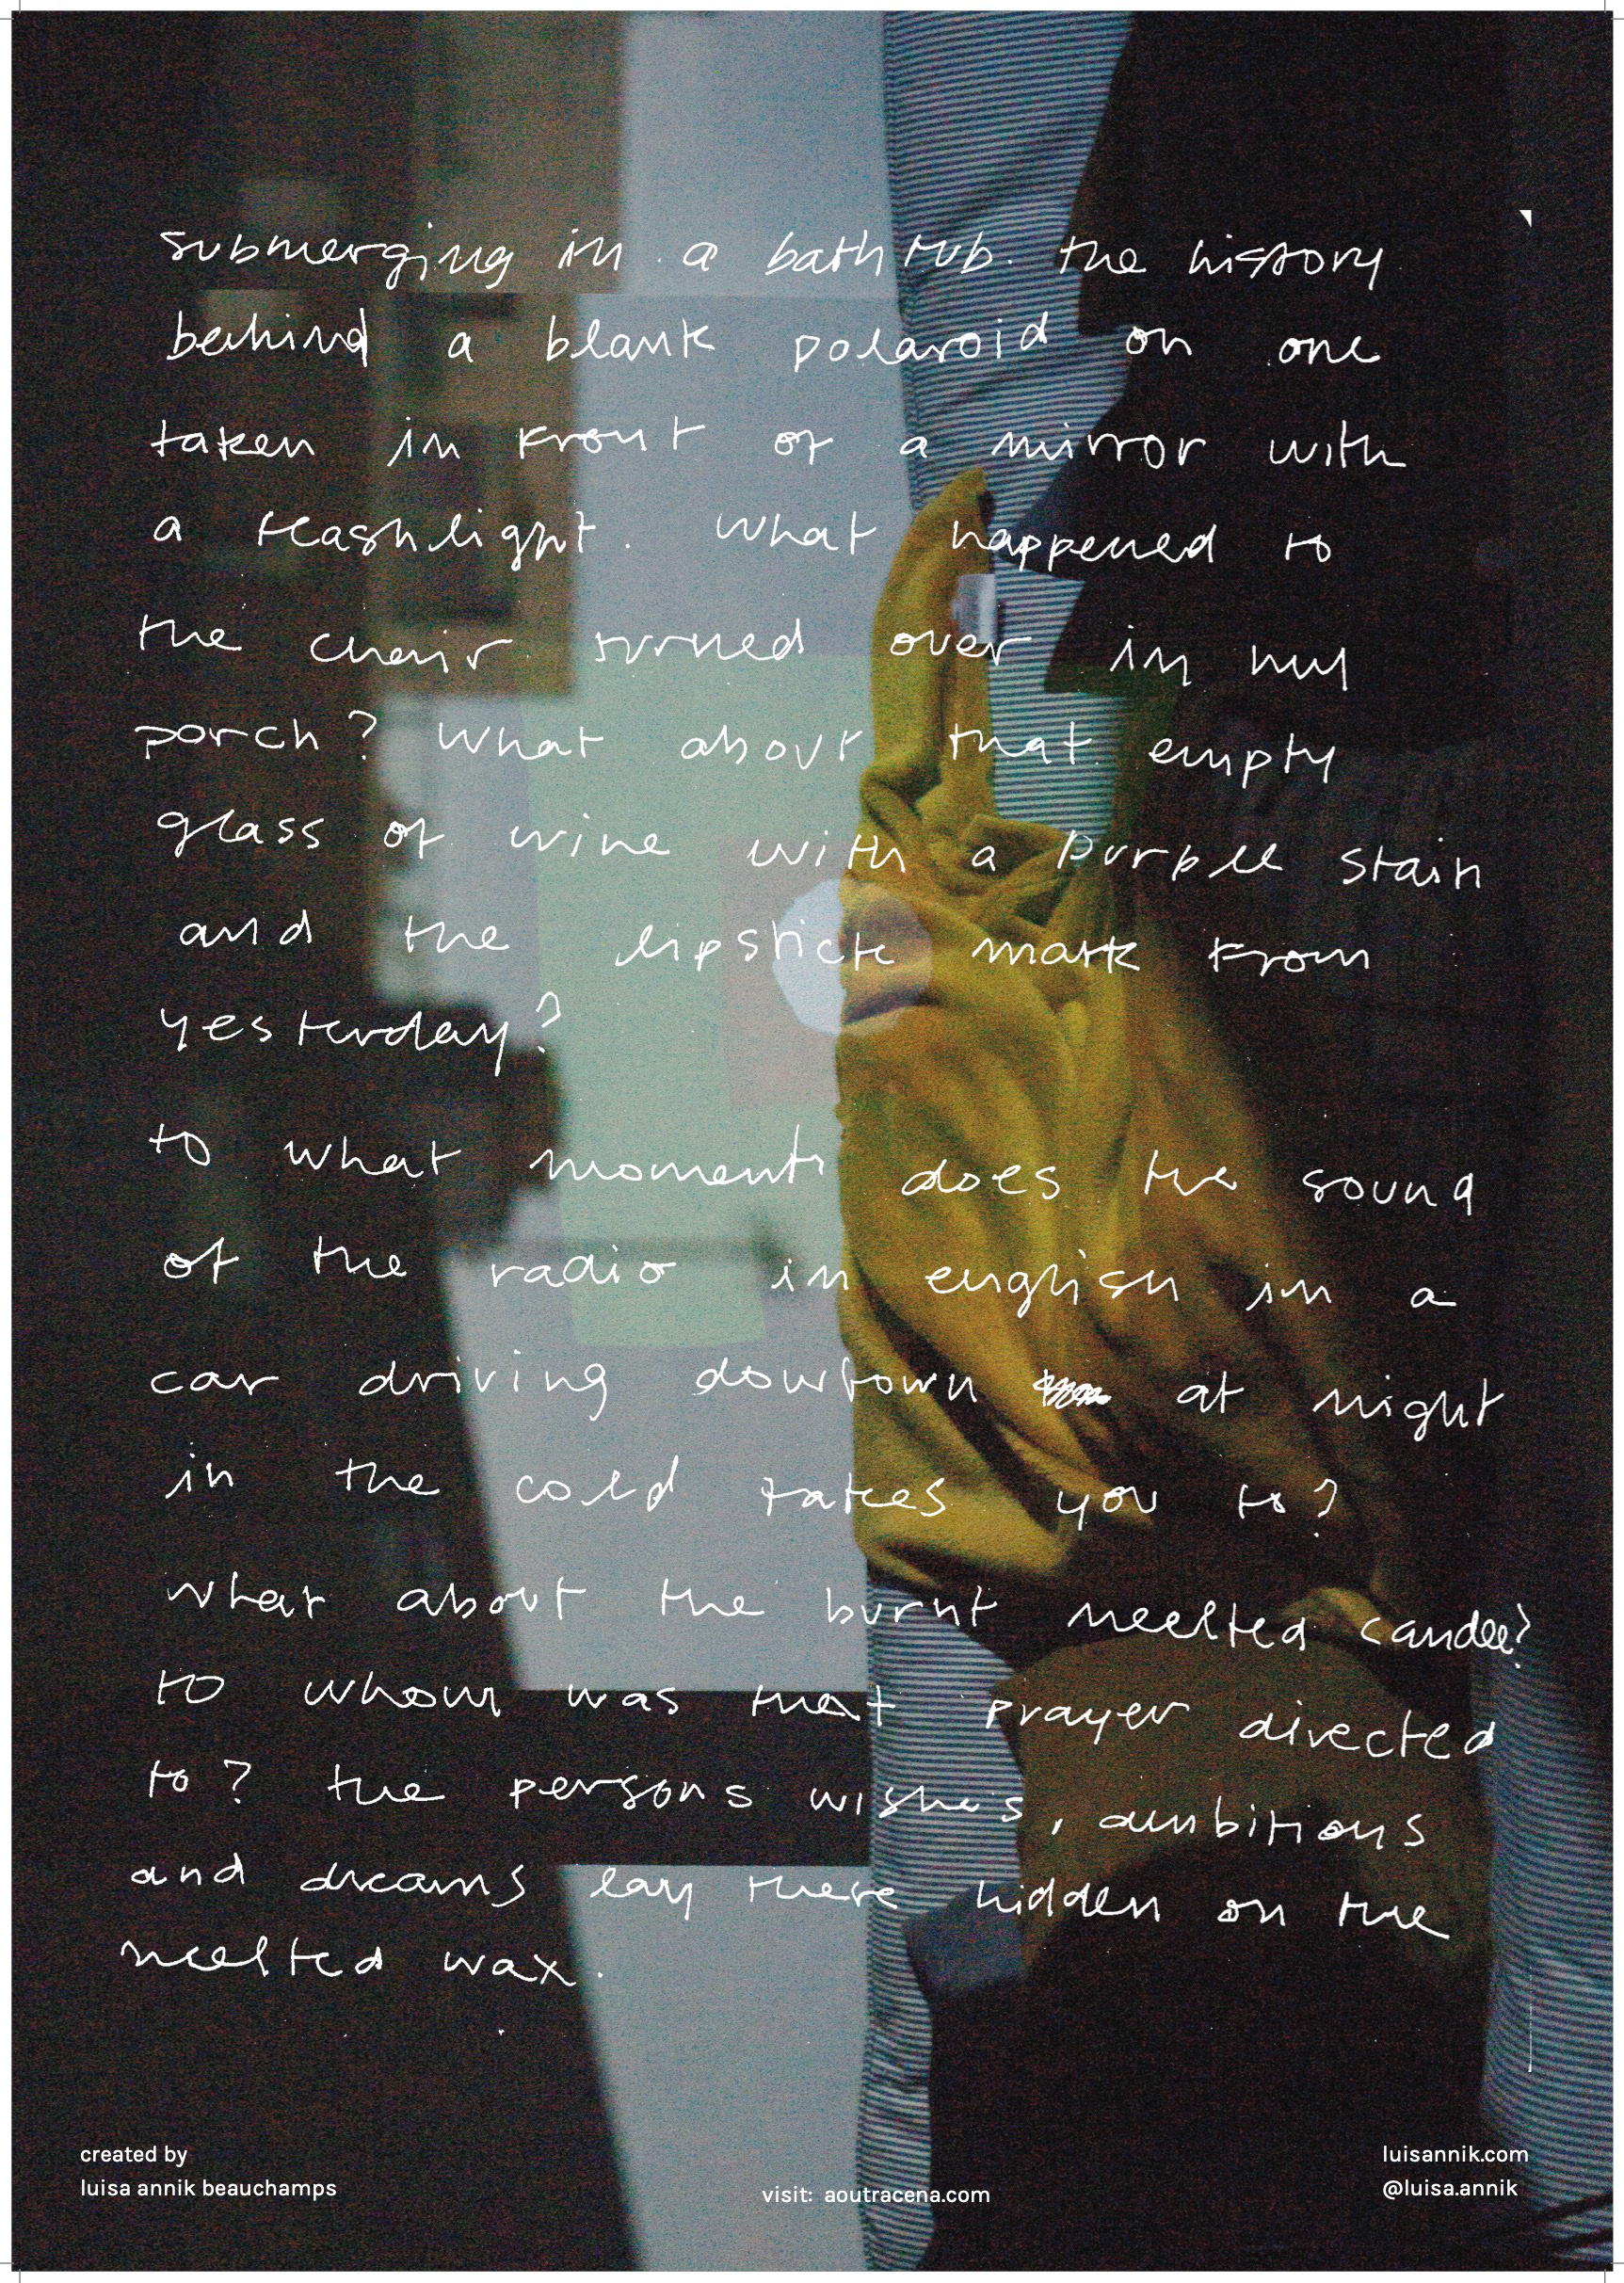 submerging in a bathtub. the history
behind a blank polaroid on one
taken in front of a mirror with
a flashlight. what happened to
the chair turned over in my
porch? what about that empty
glass of wine with a purple stain
and the lipstick mark from
yesterday?
to what moment does the sound
of the radio in english in a
car driving dowtown at night
in the cold takes you to?
what about the burnt meelted candle?
to whom was that prayer directed
to? the persons wishes, ambitions
and dreams lay there hidden on the
meelted wax.
created by
luisa annik beauchamps
visit: aoutracena.com
luisannik.com
@luisa.annik